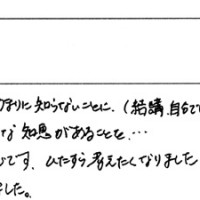 まりに知らないことに、(結講、自分で
な知恵があることを…
です。ひたすら考えたくなりました
した。